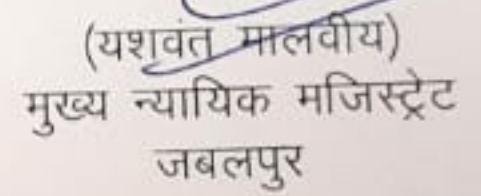 (यशवंत मालवीय)
मुख्य न्यायिक मजिस्ट्रेट
जबलपुर